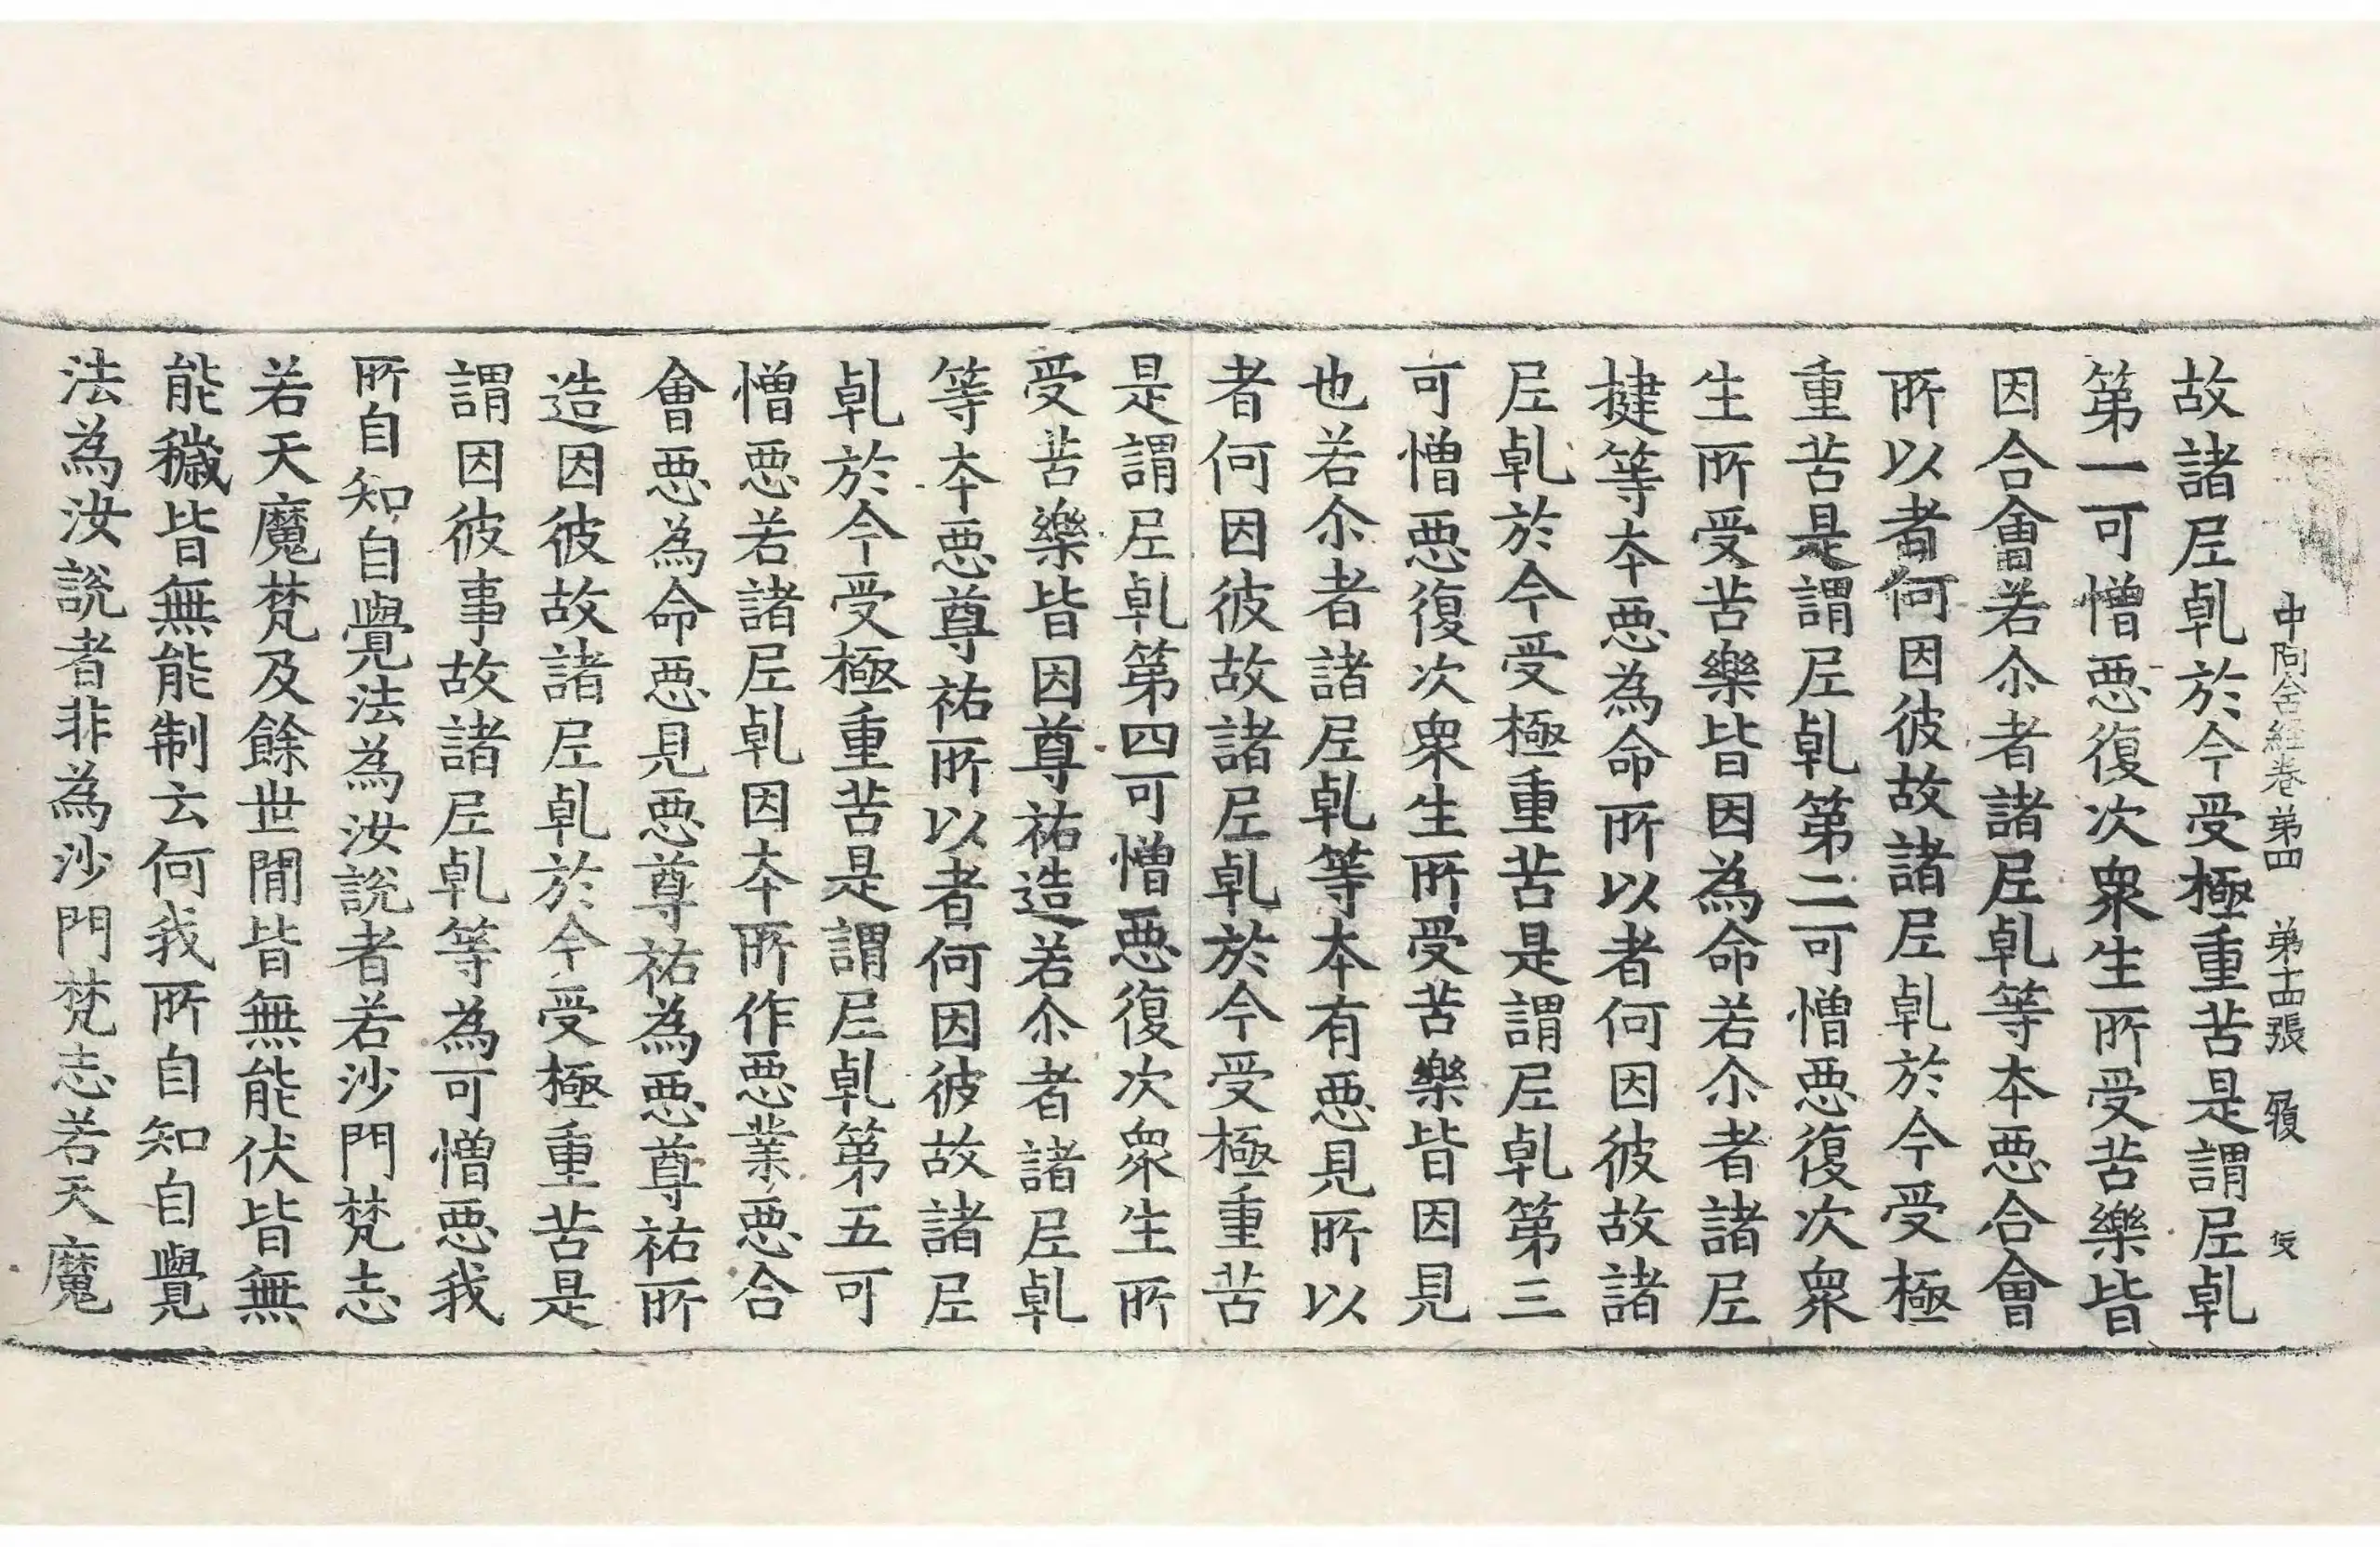 中阿含經卷第四 第十四張 履 俊
故諸尼乹於今受極重苦是謂尼乹
第一可憎惡復次衆生所受苦樂皆
因合會若尒者諸尼乹等本惡合會
所以者何因彼故諸尼乹於今受極
重苦是謂尼乹第二可憎惡復次衆
生所受苦樂皆因為命若尒者諸尼
揵等本惡為命所以者何因彼故諸
尼乹於今受極重苦是謂尼乹第三
可憎惡復次衆生所受苦樂皆因見
也若尒者諸尼乹等本有惡見所以
者何因彼故諸尼乹於今受極重苦
是謂尼乹第四可憎惡復次衆生所
受苦樂皆因尊祐造若尒者諸尼乹
等本惡尊祐所以者何因彼故諸尼
乹於今受極重苦是謂尼乹第五可
憎惡若諸尼乹因本所作惡業惡合
會惡為命惡見惡尊祐為惡尊祐所
造因彼故諸尼乹於今受極重苦是
謂因彼事故諸尼乹等為可憎惡我
所自知自覺法為汝說者若沙門梵志
若天魔梵及餘世閒皆無能伏皆無
能穢皆無能制云何我所自知自覺
法為汝說者非為沙門梵志若天魔